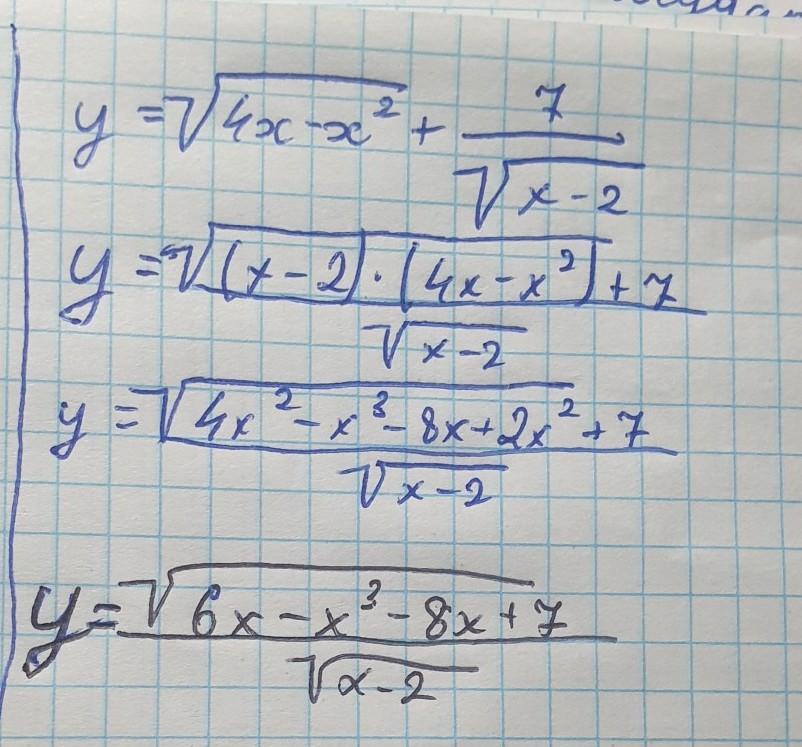 y = √(4x - x²) + 7/√(x - 2)
y = (√((x - 2) · (4x - x²)) + 7)/√(x - 2)
y = (√(4x² - x³ - 8x + 2x²) + 7)/√(x - 2)
y = (√(6x - x³ - 8x) + 7)/√(x - 2)